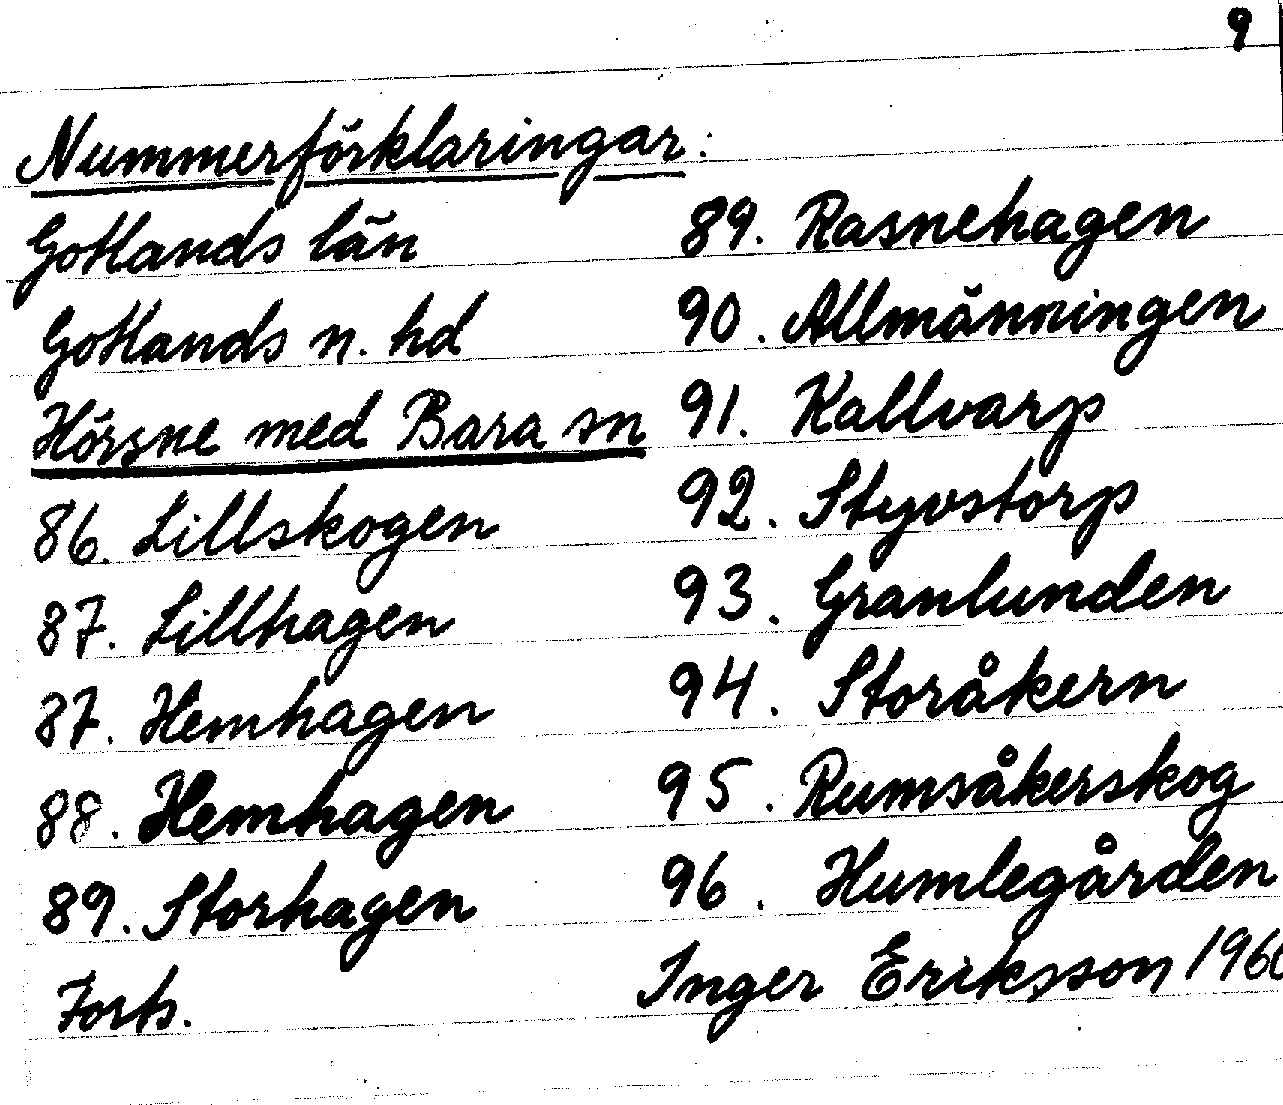 9
Nummerförklaringar:
Gotlands län
Gotlands n. hd
Hörsne med Bara sn
86. Lillskogen
87. Lillhagen
87. Hemhagen
88. Hemhagen
89. Storhagen
Forts.
89. Rasnehagen
90. Allmänningen
91. Kallvarp
92. Styvstorp
93. Granlunden
94. Storåkern
95. Rumsåkerskog
96. Humlegården
Inger Eriksson 1960